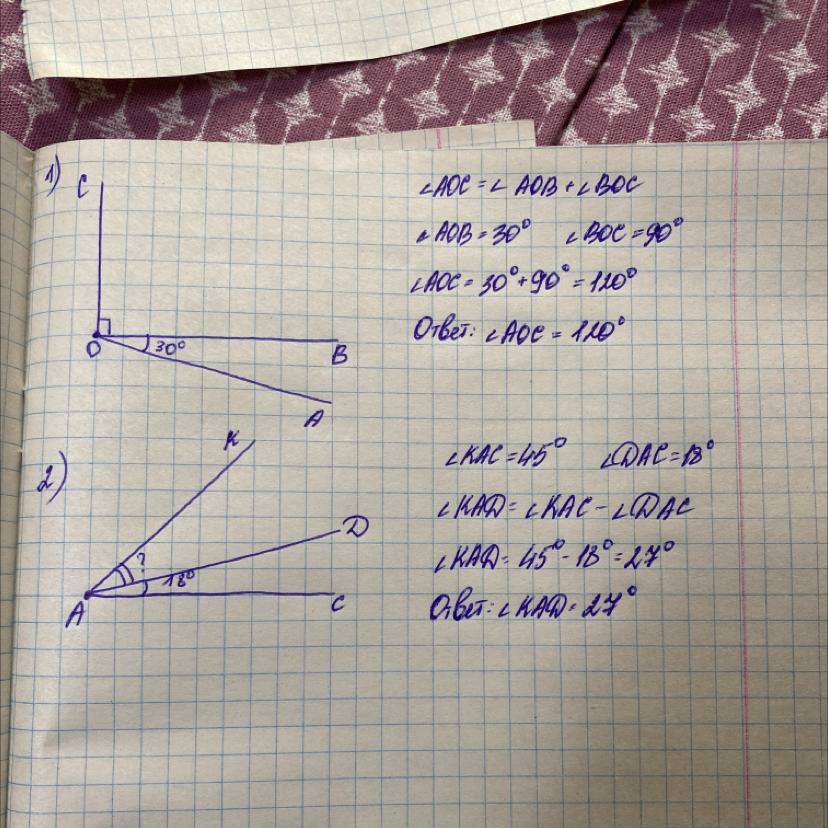 1)
C
O
30°
B
A
∠AOC = ∠AOB + ∠BOC
∠AOB = 30° ∠BOC = 90°
∠AOC = 30° + 90° = 120°
Ответ: ∠AOC = 120°
2)
K
D
?
18°
A
C
∠KAC = 45° ∠DAC = 18°
∠KAD = ∠KAC - ∠DAC
∠KAD = 45° - 18° = 27°
Ответ: ∠KAD = 27°